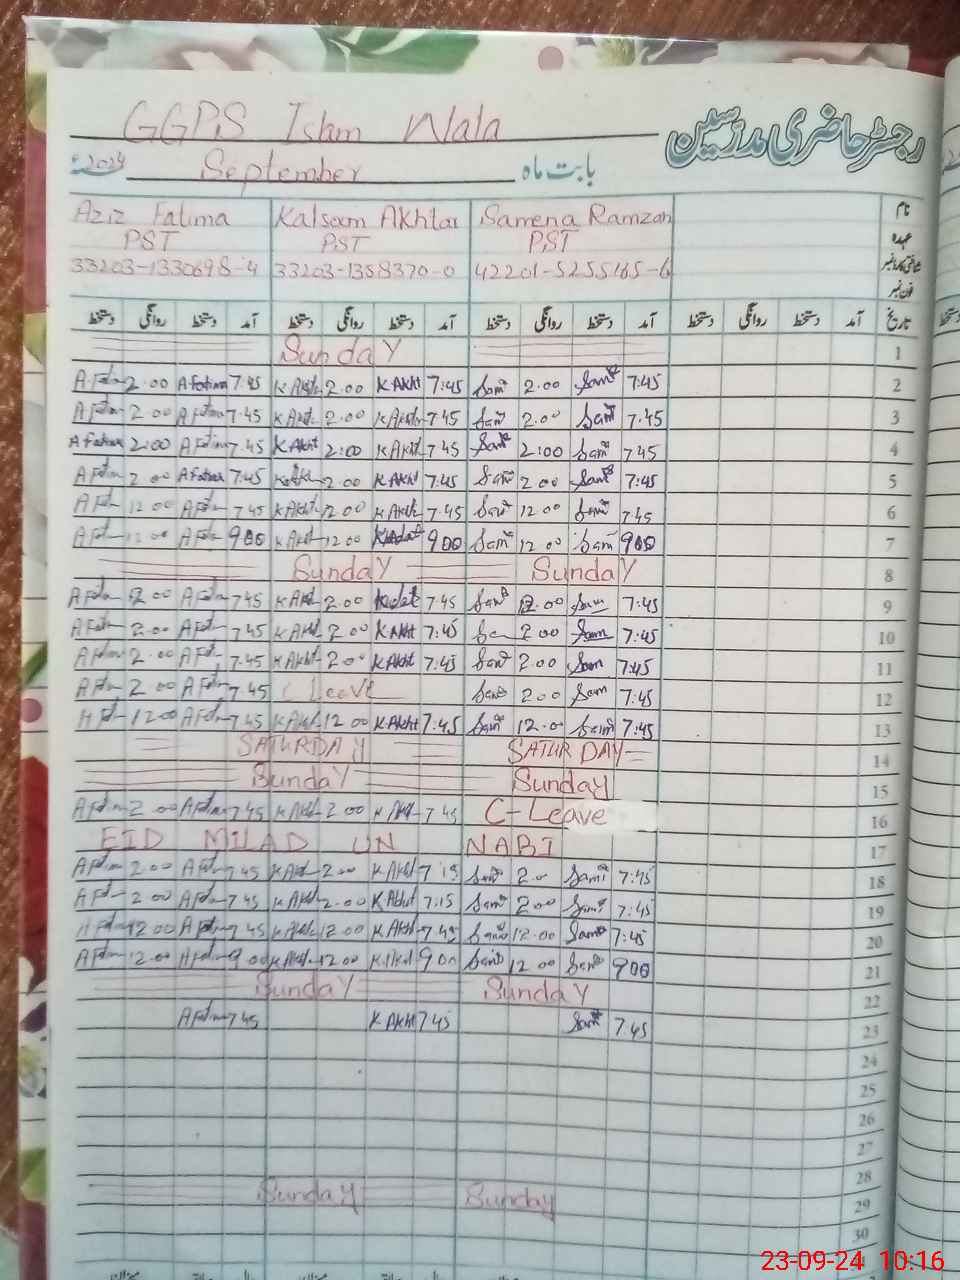 GGPS Islam Wala
رجسٹر حاضری مدرسین
2024ء September بابت ماہ
Aziz Fatima Kalsoom Akhtar Samena Ramzan نام
PST PST PST عہدہ
33203-1330698-4 33203-1358370-0 42201-5255165-6 شناختی کارڈ نمبر
فون نمبر
دستخط روانگی دستخط آمد دستخط روانگی دستخط آمد دستخط روانگی دستخط آمد دستخط روانگی دستخط آمد تاریخ
Sunday 1
2.00 A Fatima 7.45 K Akht 2.00 K Akht 7:45 Sam 2.00 Sam 7:45 2
A Fatima 2.00 A Fatima 7.45 K Akht 2.00 K Akht 7.45 Sam 2.00 Sam 7.45 3
A Fatima 2:00 A Fatima 7.45 K Akht 2:00 K Akht 7.45 Sam 2:00 Sam 7.45 4
A Fatima 2.00 A Fatima 7:45 2.00 K Akht 7.45 Sam 2.00 Sam 7:45 5
12.00 7.45 12.00 7.45 Sam 12.00 Sam 7.45 6
12.00 900 K Akht 12.00 900 Sam 12.00 Sam 900 7
Sunday Sunday 8
2.00 7.45 K Akht 2.00 7.45 Sam 2.00 Sam 7:45 9
2.00 7.45 K Akht 2.00 K Akht 7:45 2.00 Sam 7:45 10
2.00 7.45 K Akht 2.00 K Akht 7:45 Sam 2.00 Sam 7:45 11
2.00 7.45 C Leave Sam 2.00 Sam 7:45 12
12.00 7.45 K Akht 12.00 K Akht 7:45 Sam 12.00 Sam 7:45 13
SATURDAY SATURDAY 14
Sunday Sunday 15
A Fatima 2.00 A Fatima 7.45 K Akht 2.00 K Akht 7.45 C-Leave 16
EID MILAD UN NABI 17
A Fatima 2.00 7.45 K Akht 2.00 K Akht 7:15 Sam 2.00 Sam 7:45 18
2.00 7.45 K Akht 2.00 K Akht 7:15 Sam 2.00 Sam 7:45 19
12.00 7.45 K Akht 12.00 K Akht 7.45 Sam 12.00 Sam 7:45 20
A Fatima 12.00 9.00 K Akht 12.00 900 Sam 12.00 Sam 900 21
Sunday Sunday 22
A Fatima 7.45 K Akht 7.45 Sam 7.45 23
24
25
26
27
28
Sunday Sunday 29
30
23-09-24 10:16